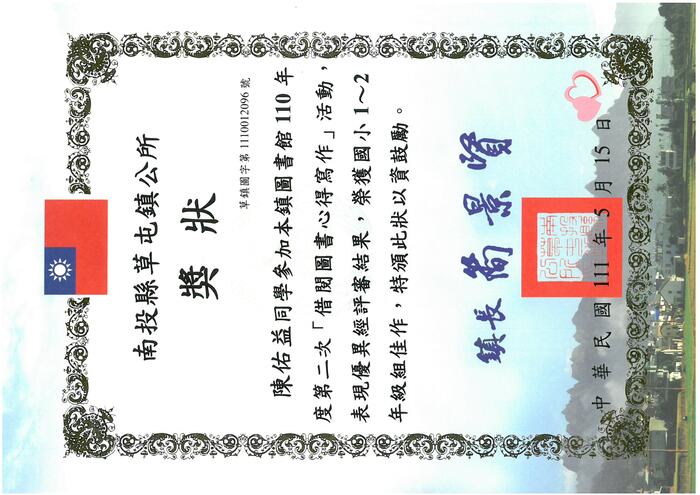 南投縣草屯鎮公所
獎狀
草鎮圖字第 1110012096 號
陳佑益同學參加本鎮圖書館 110 年
度第二次「借閱圖書心得寫作」活動，
表現優異經評審結果，榮獲國小 1～2
年級組佳作，特頒此狀以資鼓勵。
鎮長 簡景賢
中華民國 111 年 5 月 15 日